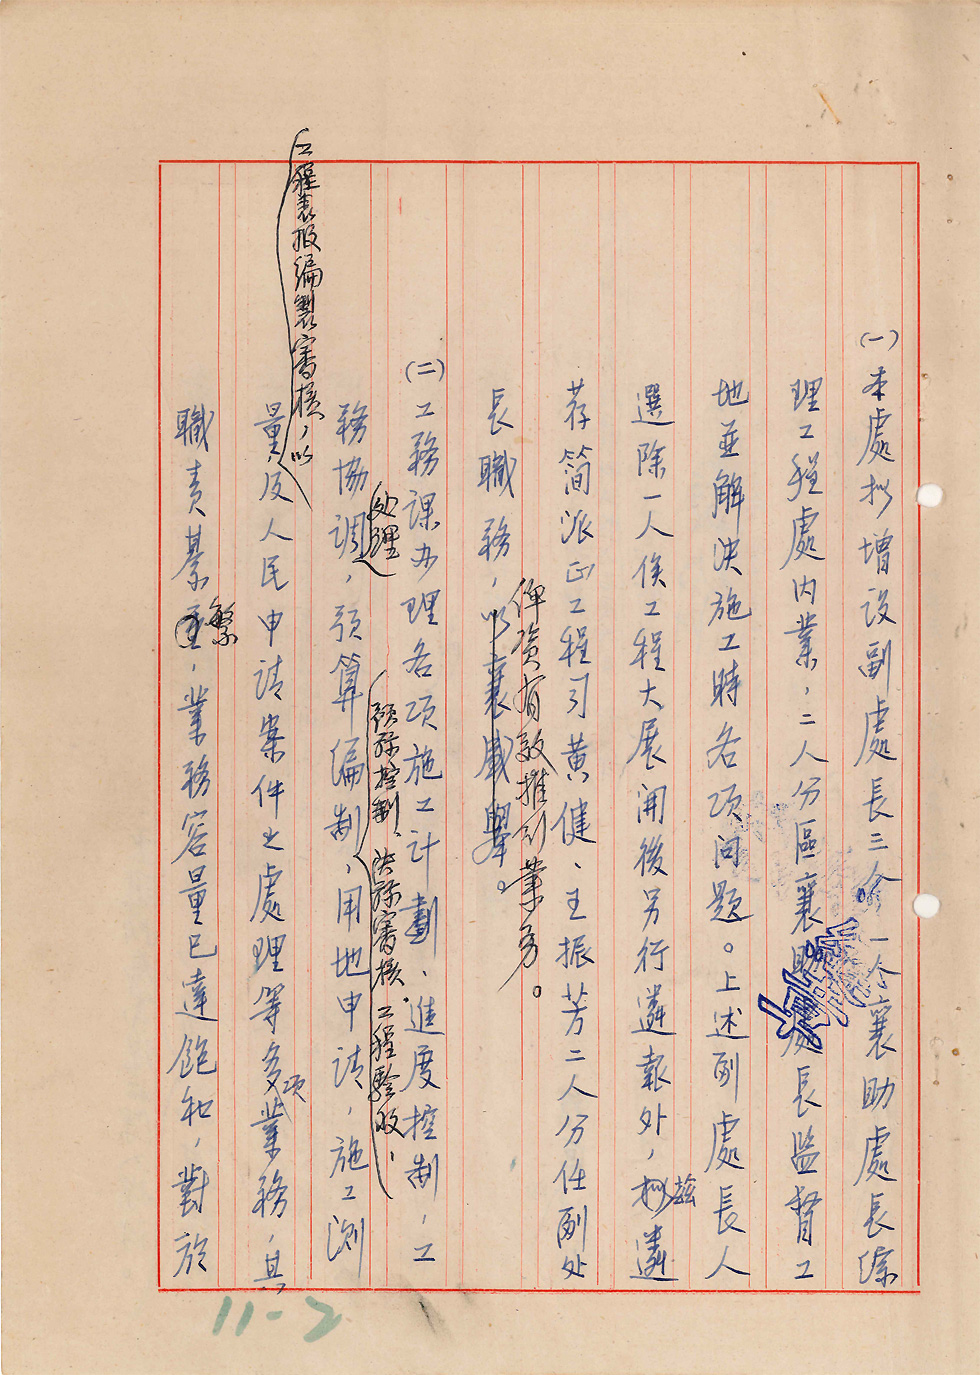 (一)本處拟增设副處長三人,一人襄助處長综
理工程處内業,二人分區襄助處長监督工
地並解決施工時各项问题。上述副處長人
選除一人俟工程大展開後另行遴報外,拟兹遴
荐简派正工程司黄健、王振芳二人分任副处
長職務,以襄盛舉。
俾资有效推行業务。
(二)工務課办理各项施工计劃、進度控制,工
预标控制、決标審核、工程驗收,
处理
務協調,预算編制、用地申请,施工测
工程表报编製審核,以
量及人民申请案件之處理等多项業務,其
職责綦重繁,業務容量已達飽和,對於
11-2